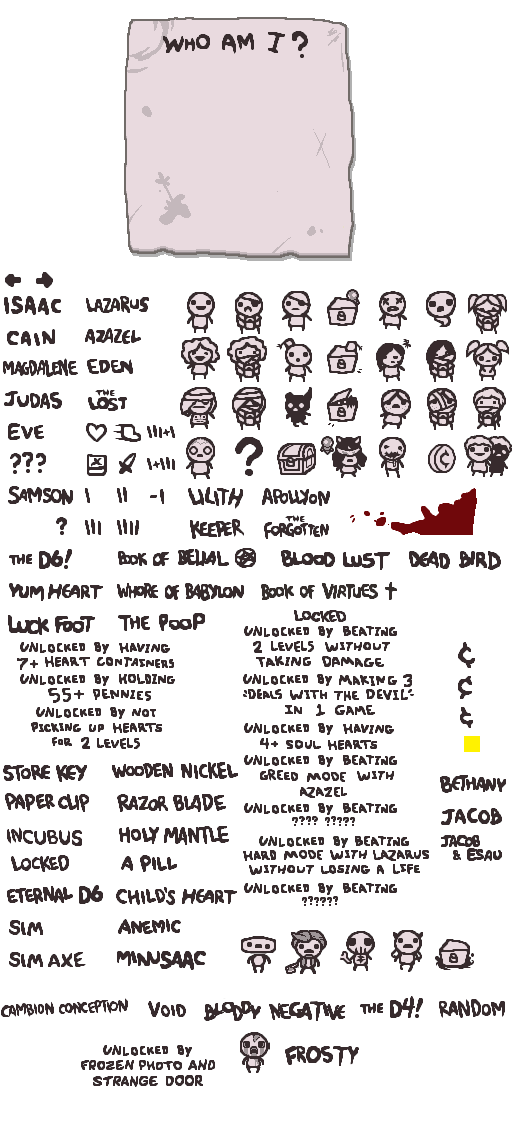 WHO AM I?
ISAAC LAZARUS
CAIN AZAZEL
MAGDALENE EDEN
JUDAS THE LOST
EVE
???
?
SAMSON I II -I LILITH APOLLYON
? III IIII KEEPER THE FORGOTTEN
THE D6! BOOK OF BELIAL BLOOD LUST DEAD BIRD
YUM HEART WHORE OF BABYLON BOOK OF VIRTUES
LUCK FOOT THE POOP
UNLOCKED BY HAVING
7+ HEART CONTAINERS
UNLOCKED BY HOLDING
55+ PENNIES
UNLOCKED BY NOT
PICKING UP HEARTS
FOR 2 LEVELS
LOCKED
UNLOCKED BY BEATING
2 LEVELS WITHOUT
TAKING DAMAGE
UNLOCKED BY MAKING 3
"DEALS WITH THE DEVIL"
IN 1 GAME
UNLOCKED BY HAVING
4+ SOUL HEARTS
UNLOCKED BY BEATING
GREED MODE WITH
AZAZEL
UNLOCKED BY BEATING
???? ?????
UNLOCKED BY BEATING
HARD MODE WITH LAZARUS
WITHOUT LOSING A LIFE
UNLOCKED BY BEATING
??????
¢
¢
¢
STORE KEY WOODEN NICKEL
PAPER CLIP RAZOR BLADE
INCUBUS HOLY MANTLE
LOCKED A PILL
ETERNAL D6 CHILD'S HEART
SIM ANEMIC
SIM AXE MINUSAAC
BETHANY
JACOB
JACOB
& ESAU
CAMBION CONCEPTION VOID BLOODY NEGATIVE THE D4! RANDOM
UNLOCKED BY
FROZEN PHOTO AND
STRANGE DOOR
FROSTY